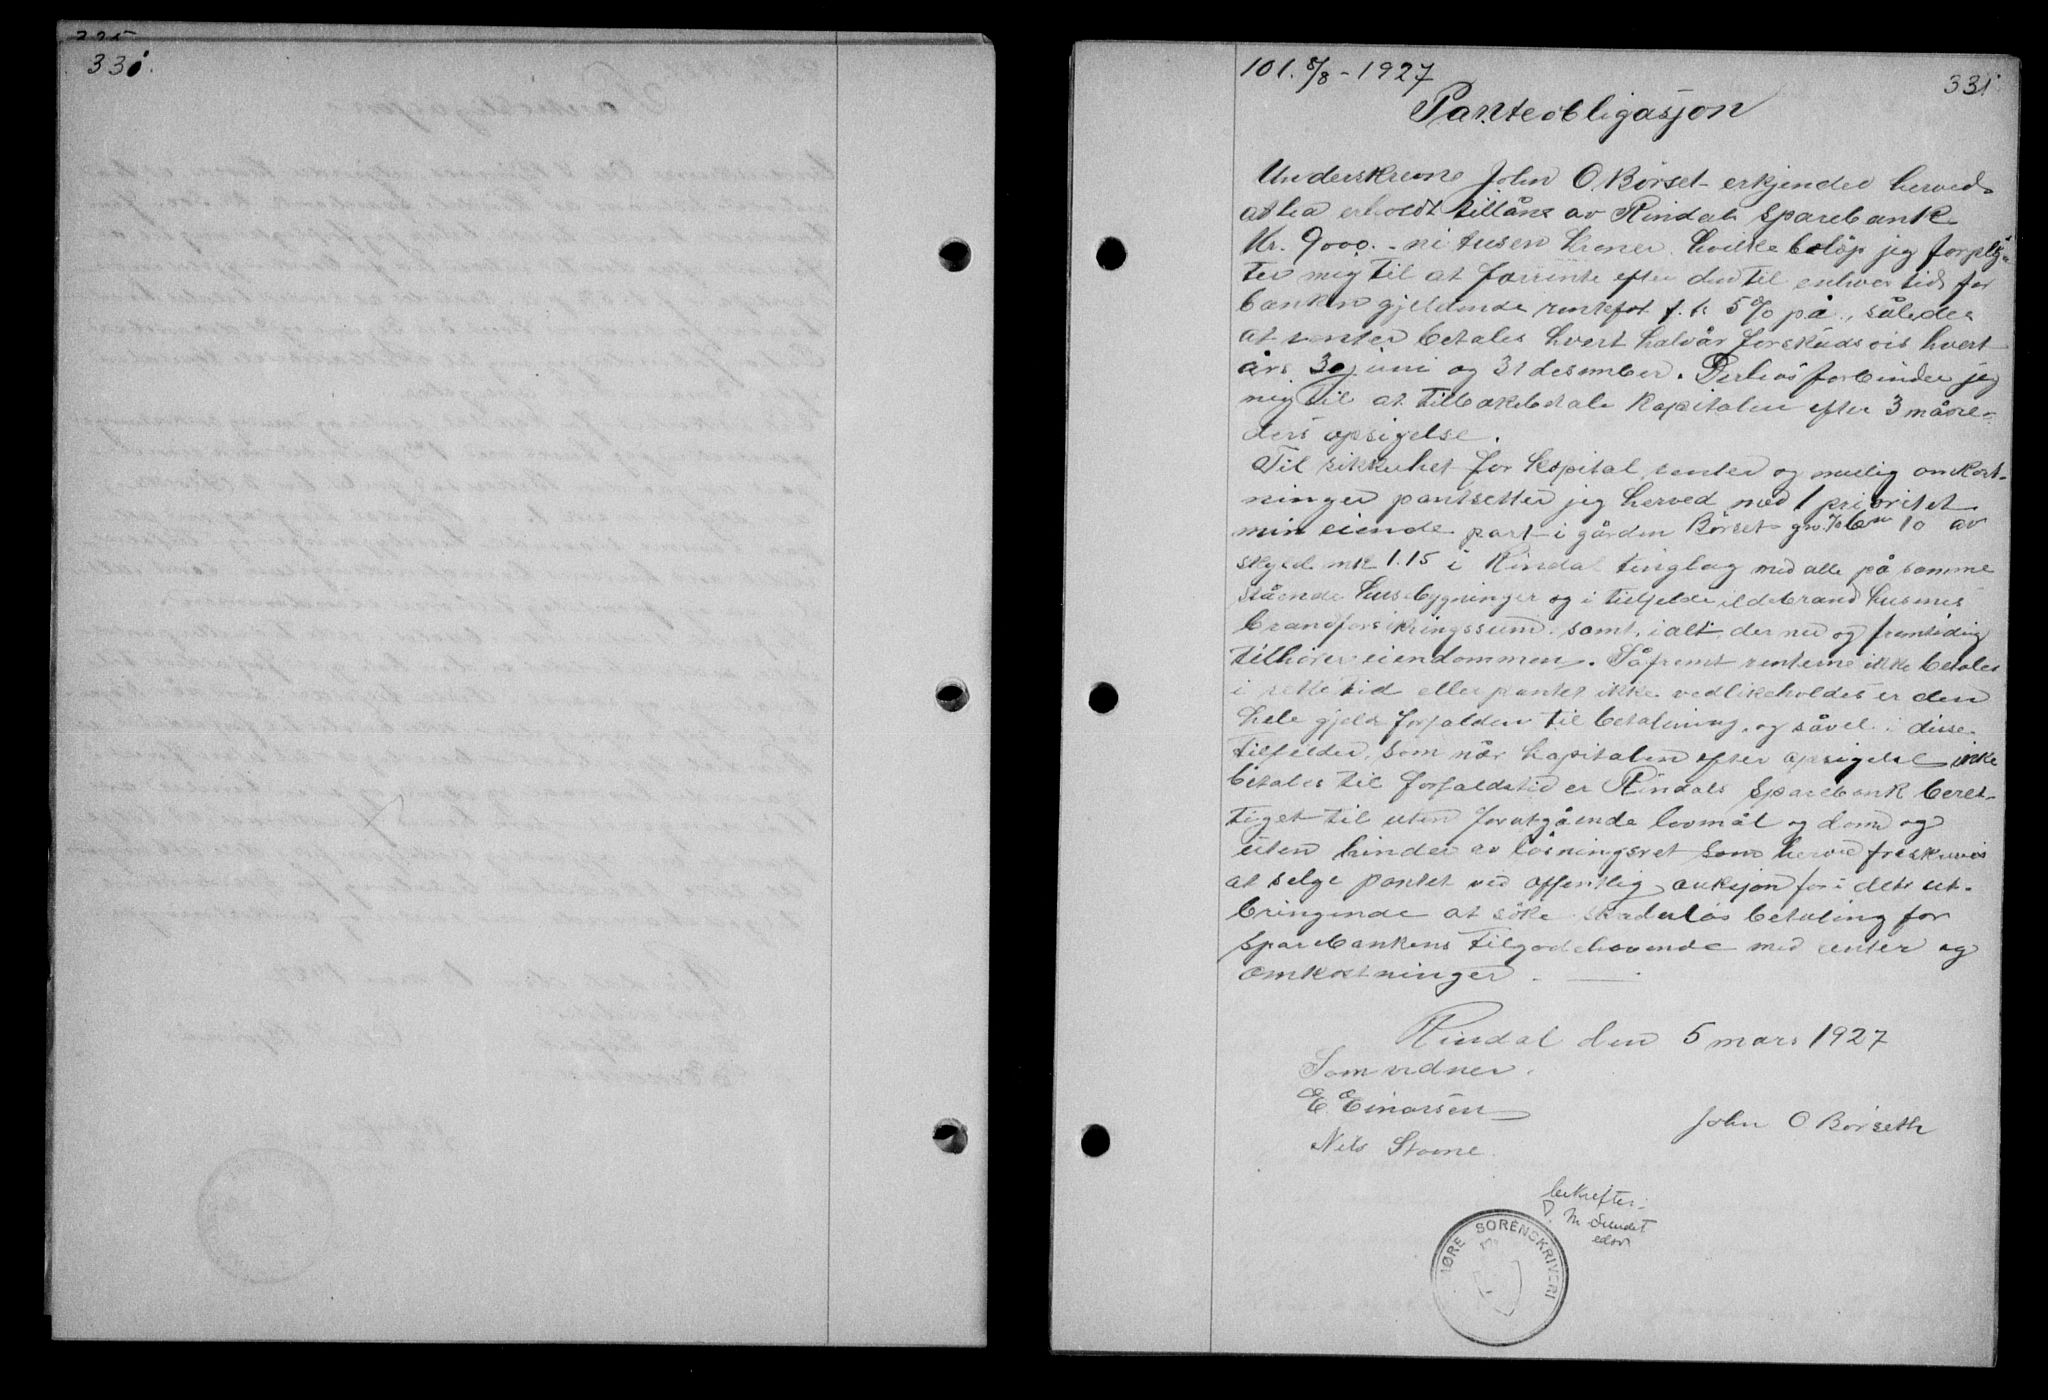 330.
101. 8/8 - 1927
331
Panteobligasjon
Underskrevne John O. Børset erkjender herved
at ha erholdt tillåns av Rindals Sparebank
Kr. 9000.- ni tusen kroner hvilke beløp jeg forplig-
ter mig til at forrente efter den til enhver tid for
banken gjeldende rentefot f. t. 5% pa., således
at renter betales hvert halvår forskudsvis hvert
års 30 juni og 31 desember. Derhos forbinder jeg
mig til at tilbakebetale kapitalen efter 3 måne-
ders opsigelse.
Til sikkerhet for kapital, renter og mulig omkost-
ninger pantsetter jeg herved med 1 prioritet
min eiende part i gården Børset gno. bno 10 av
skyld mk 1.15 i Rindal tinglag med alle på samme
stående husebygninger og i tilfelde ildebrand husenes
brandforsikringssum samt i alt der nu og fremtidig
tilhører eiendommen. Såfremt renterne ikke betales
i rette tid eller pantet ikke vedlikeholdes er den
hele gjeld forfalden til betalning, og såvel i disse
tilfelder, som når kapitalen efter opsigelse ikke
betales til forfaldstid er Rindals Sparebank beret-
tiget til uten forutgående lovmål og dom og
uten hinder av løsningsret som herved fraskrives
at selge pantet ved offentlig auksjon for i dets ut-
bringende at søke skadesløs betaling for
Sparebankens tilgodehavende med renter og
omkostninger.
Rindal den 5 mars 1927
Som vidner.
E. Einarsen
John O Børseth
Nils Stomne.
bekreftes
M Sundet
edsv.
MØRE SORENSKRIVERI